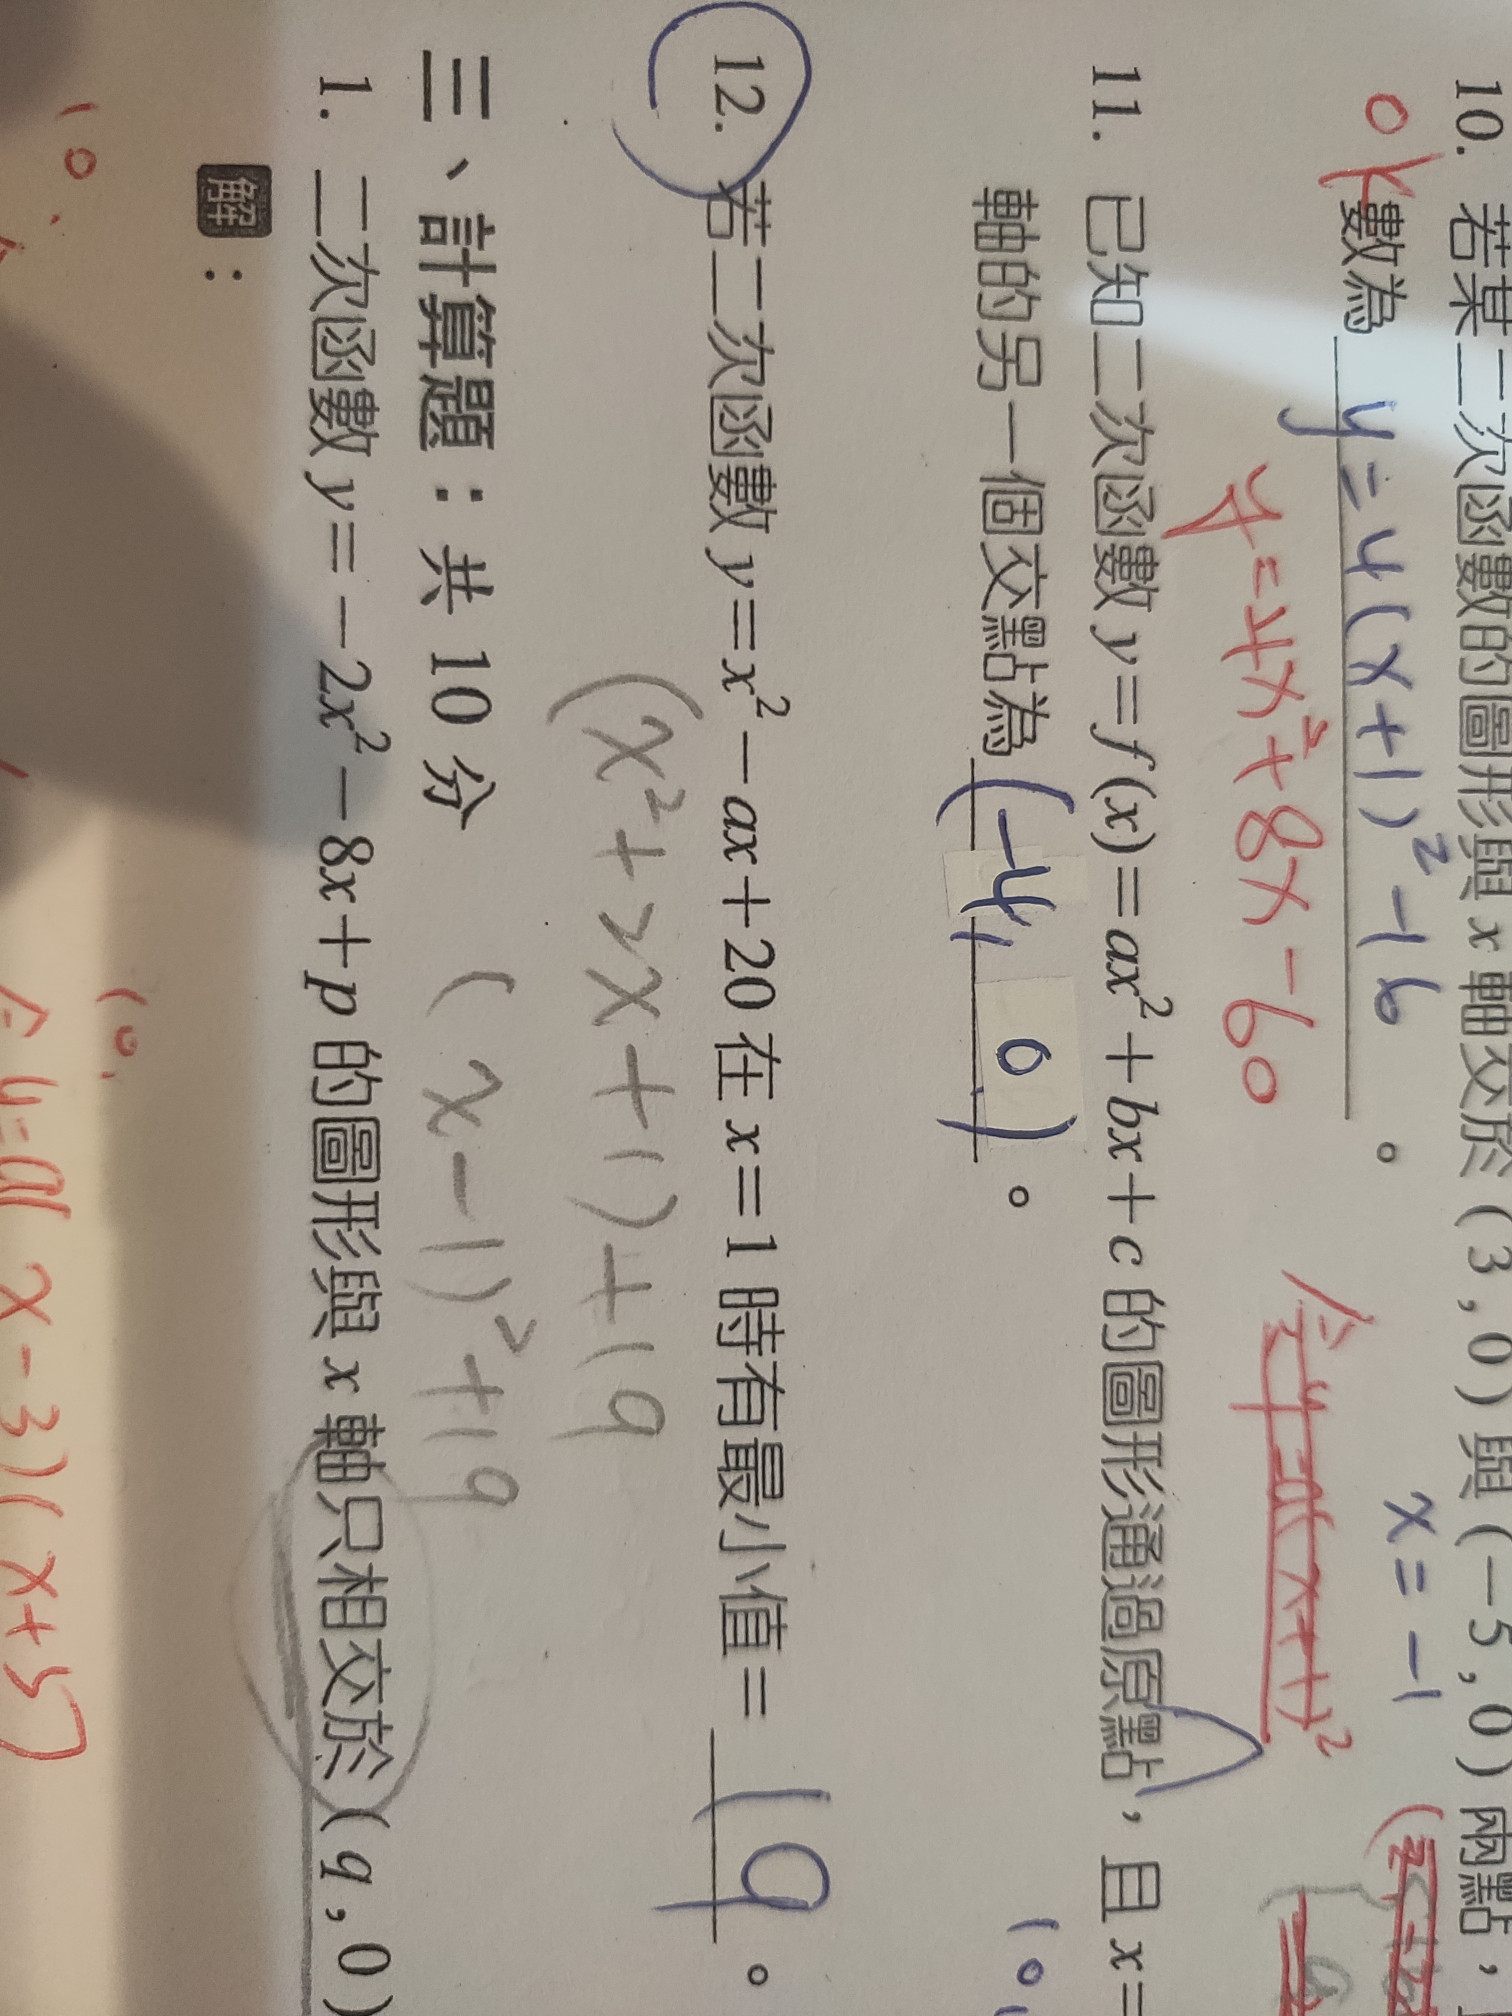 10. 若某二次函數的圖形與 x 軸交於 (3, 0) 與 (-5, 0) 兩點,
數為 y=4(x+1)²-16 。 x=-1
y=4x²+8x-60
令y=a(x+1)²
11. 已知二次函數 y=f(x)=ax²+bx+c 的圖形通過原點, 且 x=
軸的另一個交點為 (-4, 0) 。
12. 若二次函數 y=x²-ax+20 在 x=1 時有最小值= 19 。
(x²+2x+1)+19
(x-1)²+19
三、計算題:共 10 分
1. 二次函數 y=-2x²-8x+p 的圖形與 x 軸只相交於 (q, 0)
解:
10.
令y=a(x-3)(x+5)